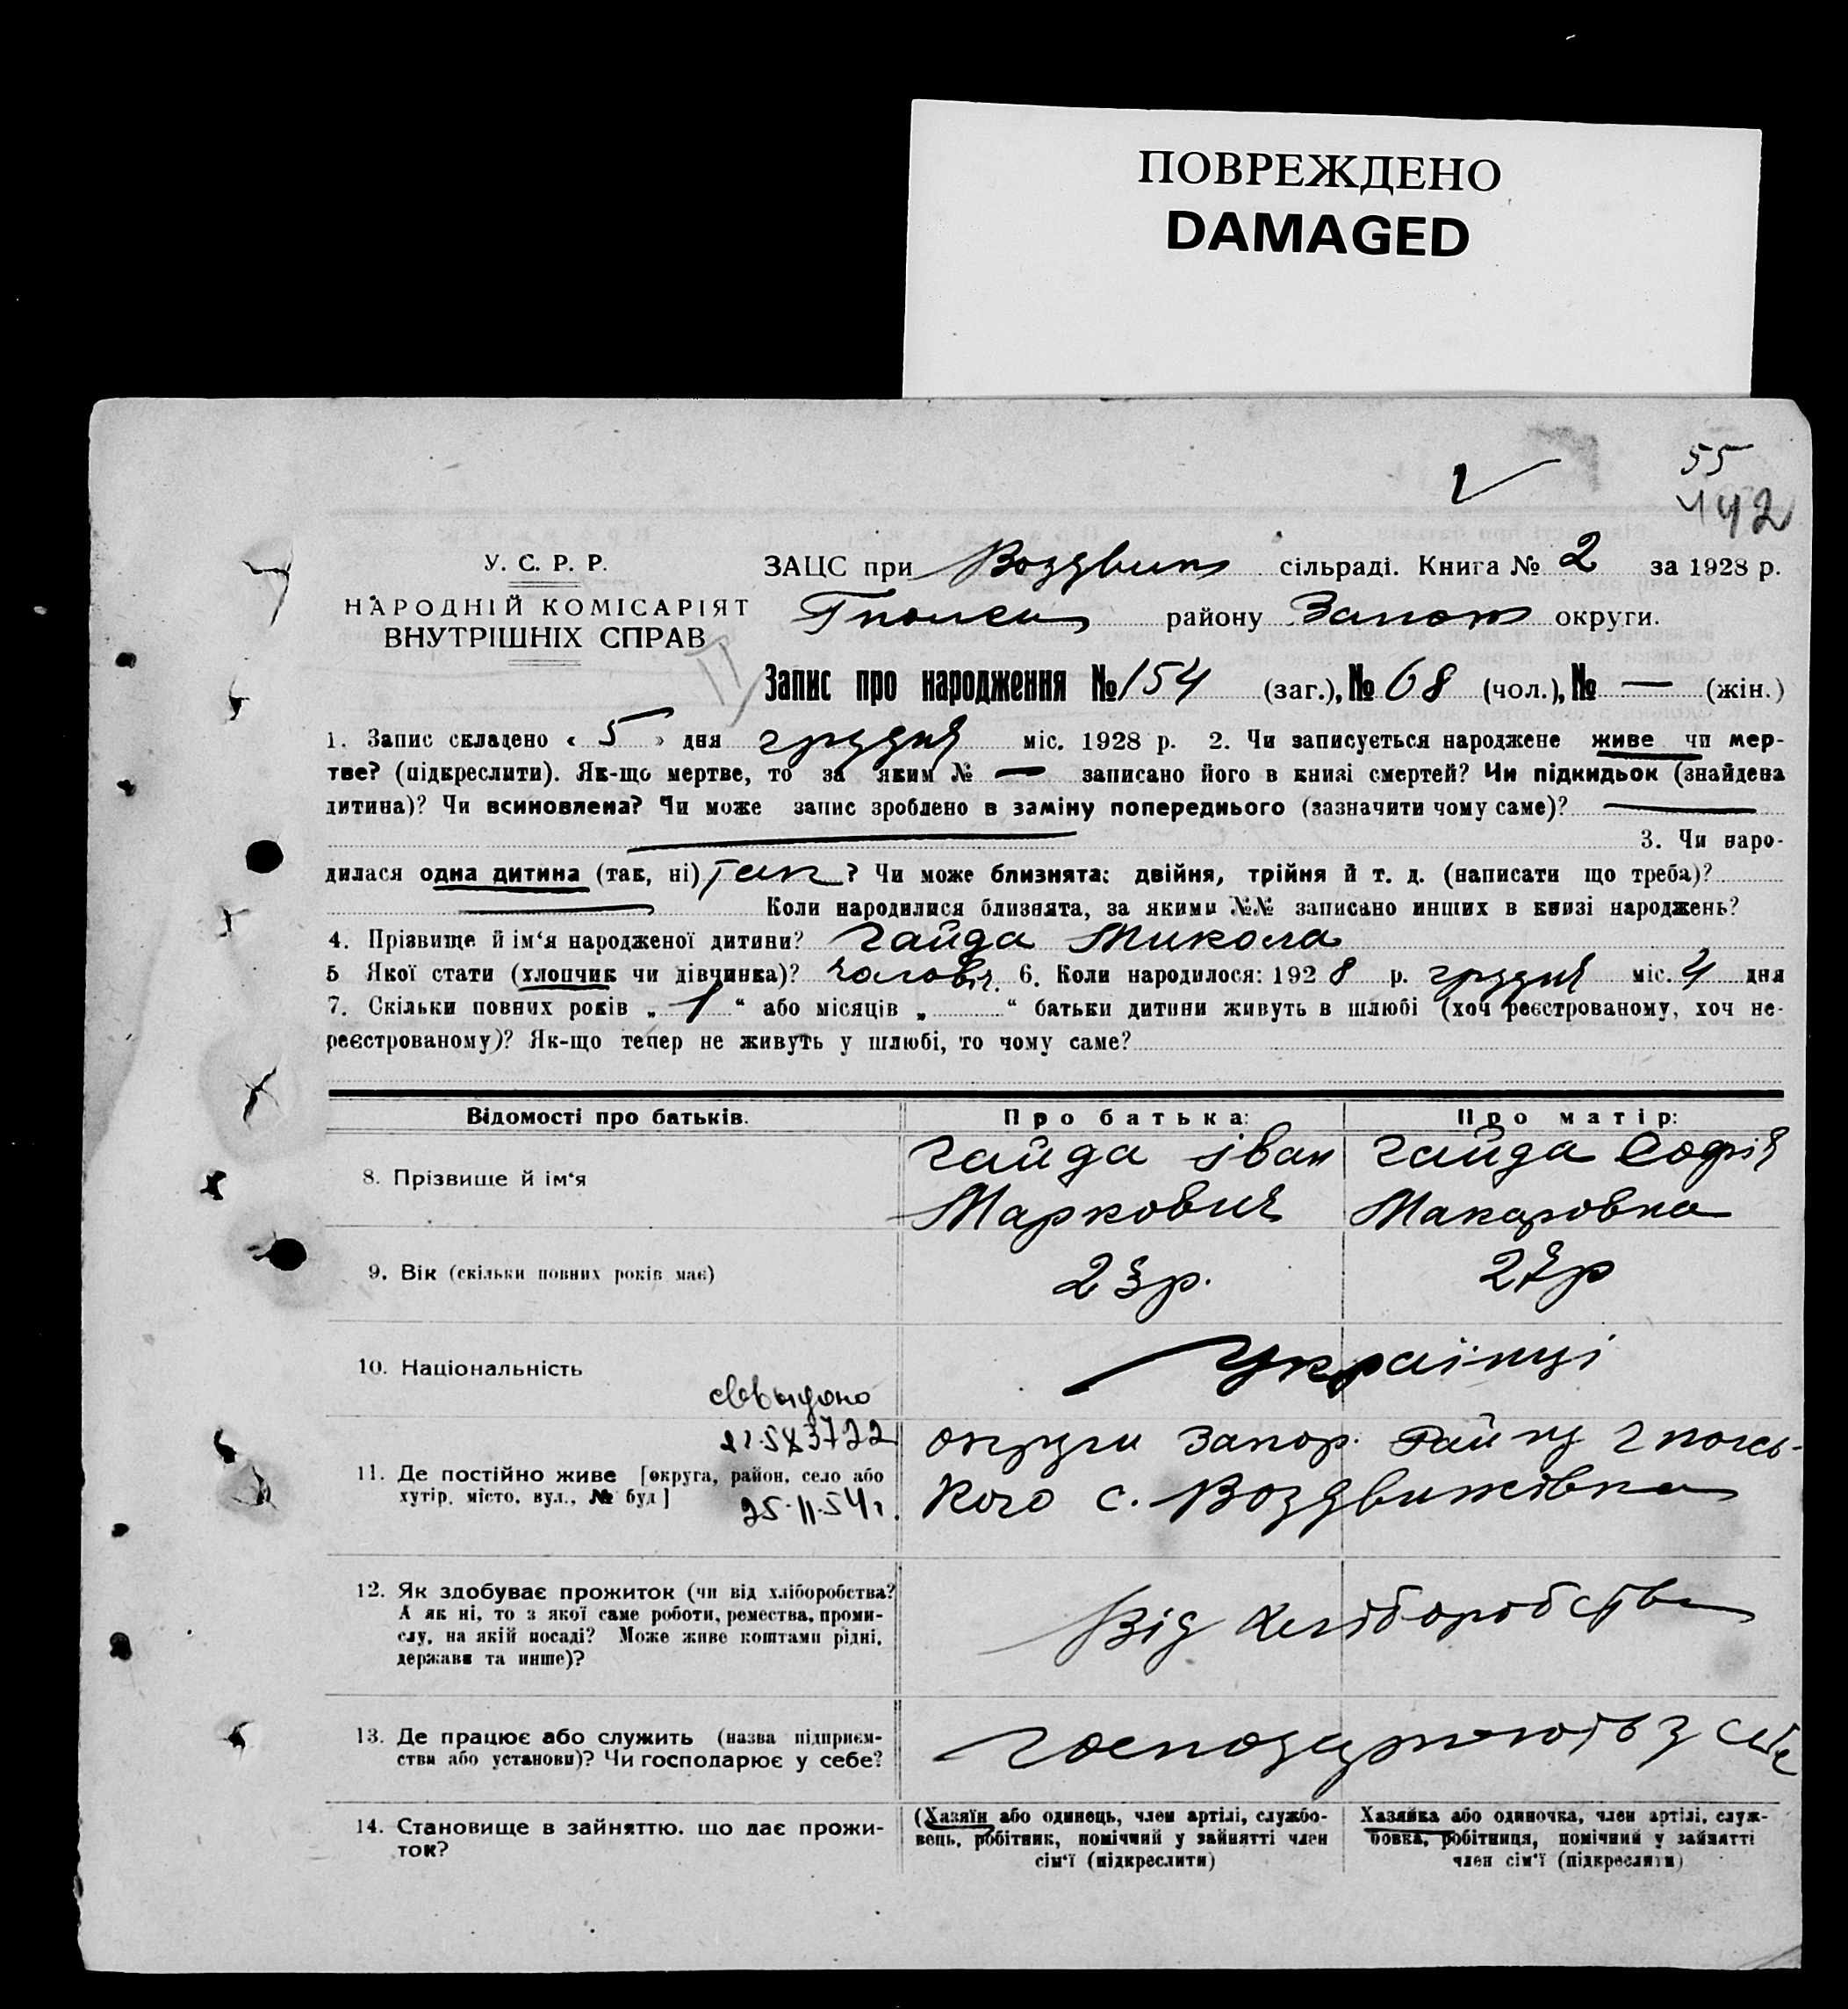 ПОВРЕЖДЕНО
DAMAGED
55
442
У. С. Р. Р.
НАРОДНІЙ КОМІСАРІЯТ
ВНУТРІШНІХ СПРАВ
ЗАЦС при Воздвиж сільраді. Книга № 2 за 1928 р.
Гполск району Запож округи.
Запис про народження № 154 (заг.), № 68 (чол.), № — (жін.)
1. Запис складено « 5 » дня грудня міс. 1928 р. 2. Чи записується народжене живе чи мер-
тве? (підкреслити). Як-що мертве, то за яким № — записано його в книзі смертей? Чи підкидьок (знайдена
дитина)? Чи всиновлена? Чи може запис зроблено в заміну попереднього (зазначити чому саме)?
3. Чи наро-
дилася одна дитина (так, ні) так ? Чи може близнята: двійня, трійня й т. д. (написати що треба)?
Коли народилися близнята, за якими №№ записано инших в книзі народжень?
4. Прізвище й ім‘я народженої дитини? Гайда Микола
5 Якої стати (хлопчик чи дівчинка)? чоловіч. 6. Коли народилося: 1928 р. грудня міс. 4 дня
7. Скільки повних років „ 1 “ або місяців „ “ батьки дитини живуть в шлюбі (хоч реєстрованому, хоч не-
реєстрованому)? Як-що тепер не живуть у шлюбі, то чому саме?
Відомості про батьків. Про батька: Про матір:
8. Прізвище й ім‘я Гайда Іван Маркович Гайда Софія Макаровна
9. Вік (скільки повних років має) 23р. 27р
10. Національність Українці
11. Де постійно живе [округа, район, село або
хутір, місто, вул., № буд] округи Запор. Райну Гполсь-
кого с. Воздвижівка
25.II.54г.
12. Як здобуває прожиток (чи від хліборобства?
А як ні, то з якої саме роботи, ремества, проми-
слу, на якій посаді? Може живе коштами рідні,
держави та инше)? Від хліборобства
13. Де працює або служить (назва підприєм-
ства або установи)? Чи господарює у себе? Господарюють у себе
14. Становище в зайняттю, що дає прожи-
ток?
(Хазяїн або одинець, член артілі, службо-
вець, робітник, помічний у зайнятті член
сім‘ї (підкреслити)
Хазяйка або одиночка, член артілі, служ-
бовка, робітниця, помічний у зайнятті
член сім‘ї (підкреслити)